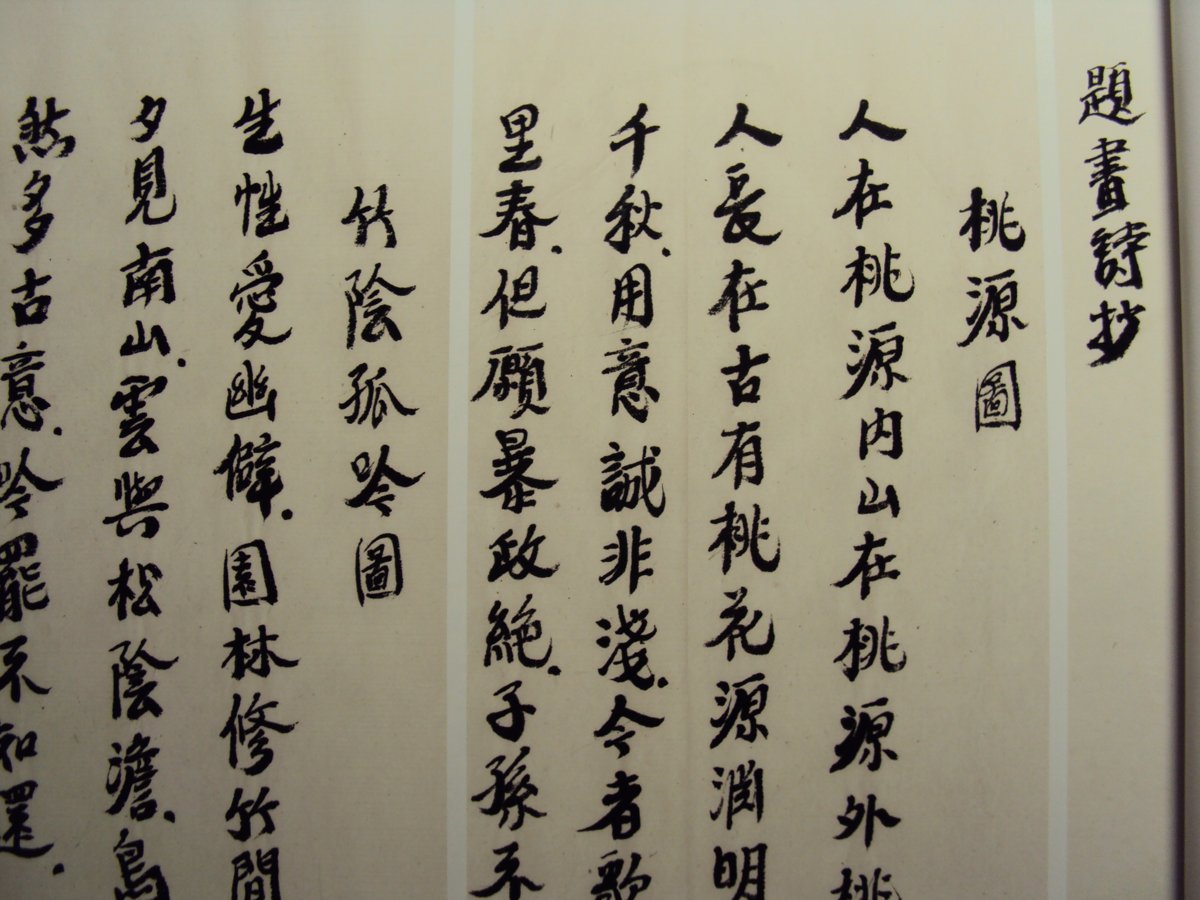 題畫詩抄
桃源圖
人在桃源内山在桃源外桃
人長在古有桃花源淵明
千秋.用意誠非淺.今者歌
里春.但願暴政絕.子孫不
竹陰孤吟圖
生性愛幽僻.園林修竹間
夕見南山.雲與松陰澹.鳥
然多古意.吟罷不知還.